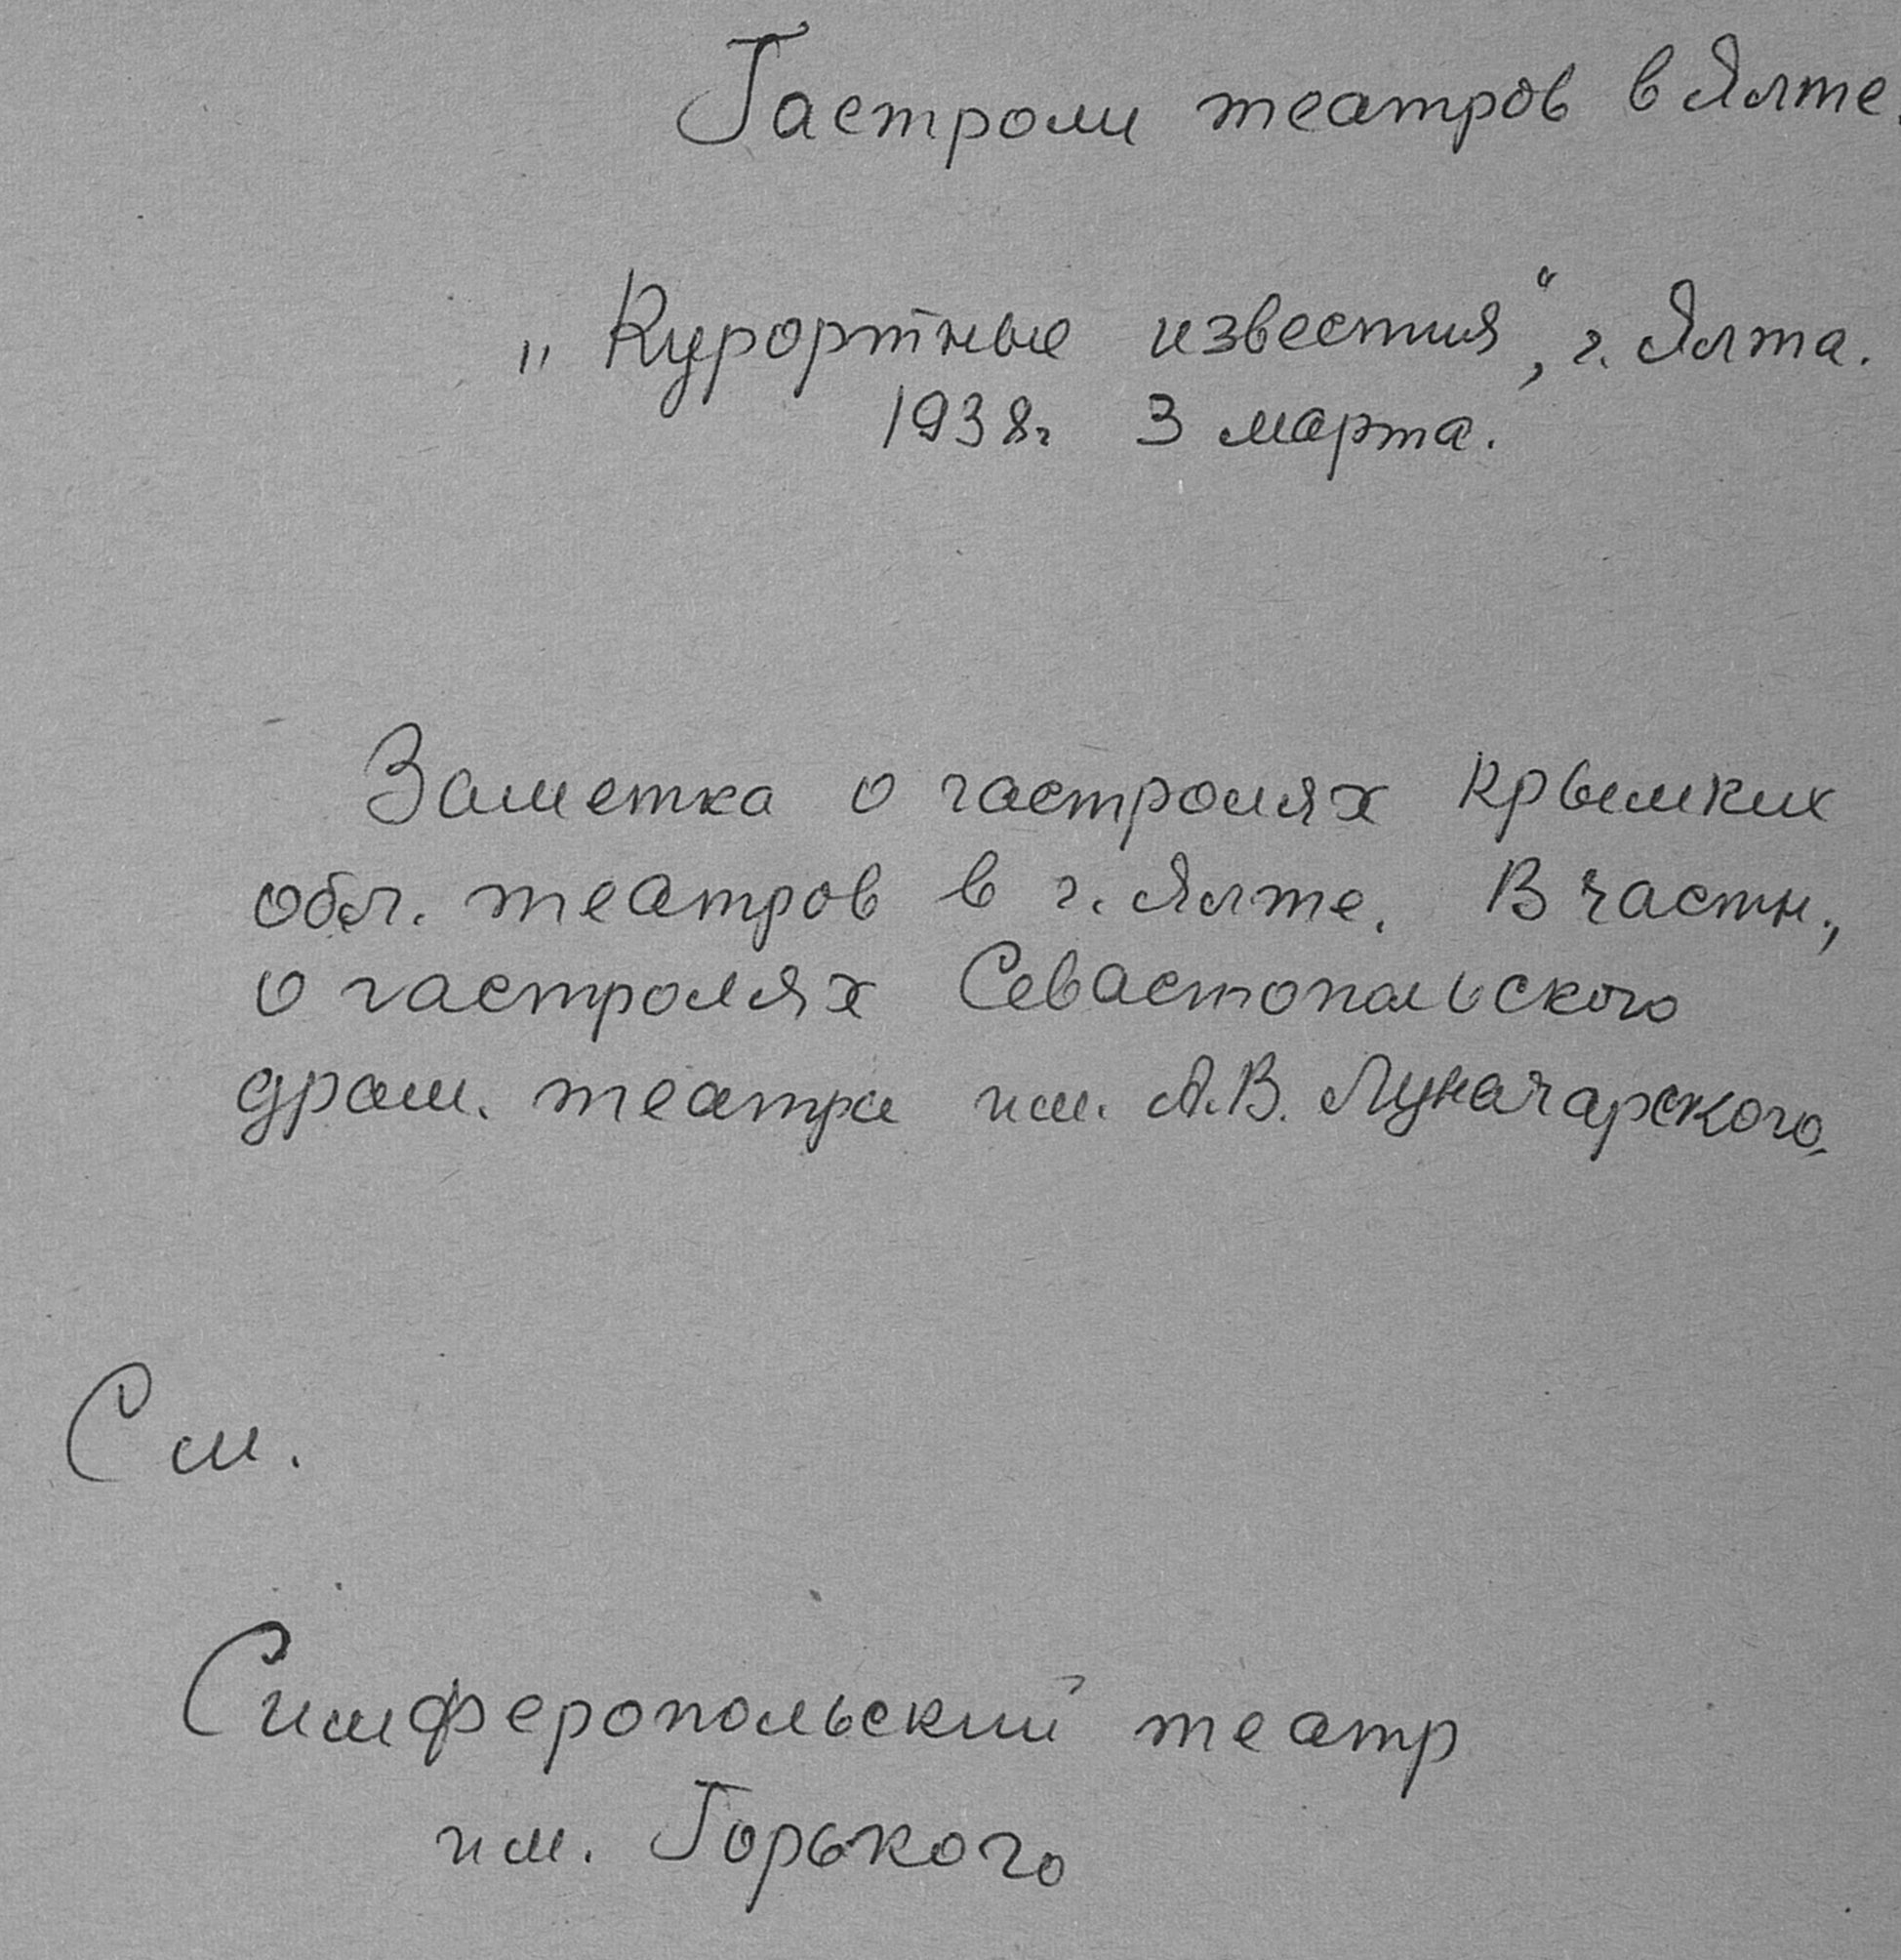 Гастроли театров в Ялте.
„Курортные известия“, г. Ялта.
1938г 3 марта.
Заметка о гастролях крымких
обл. театров в г. Ялте. В частн.,
о гастролях Севастопольского
драм. театра им. А.В. Луначарского.
См.
Симферопольский театр
им. Горького